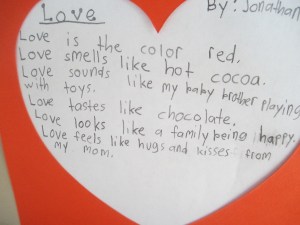 Love
By: Jonathan
Love is the color red.
Love smells like hot cocoa.
Love sounds like my baby brother playing
with toys.
Love tastes like chocolate.
Love looks like a family being happy.
Love feels like hugs and kisses from
my mom.